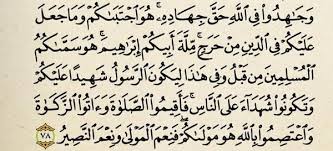 وَجَٰهِدُوا۟ فِى ٱللَّهِ حَقَّ جِهَادِهِۦ ۚ هُوَ ٱجْتَبَىٰكُمْ وَمَا جَعَلَ
عَلَيْكُمْ فِى ٱلدِّينِ مِنْ حَرَجٍ ۚ مِّلَّةَ أَبِيكُمْ إِبْرَٰهِيمَ ۚ هُوَ سَمَّىٰكُمُ
ٱلْمُسْلِمِينَ مِن قَبْلُ وَفِى هَٰذَا لِيَكُونَ ٱلرَّسُولُ شَهِيدًا عَلَيْكُمْ
وَتَكُونُوا۟ شُهَدَآءَ عَلَى ٱلنَّاسِ ۚ فَأَقِيمُوا۟ ٱلصَّلَوٰةَ وَءَاتُوا۟ ٱلزَّكَوٰةَ
وَٱعْتَصِمُوا۟ بِٱللَّهِ هُوَ مَوْلَىٰكُمْ ۖ فَنِعْمَ ٱلْمَوْلَىٰ وَنِعْمَ ٱلنَّصِيرُ ٧٨